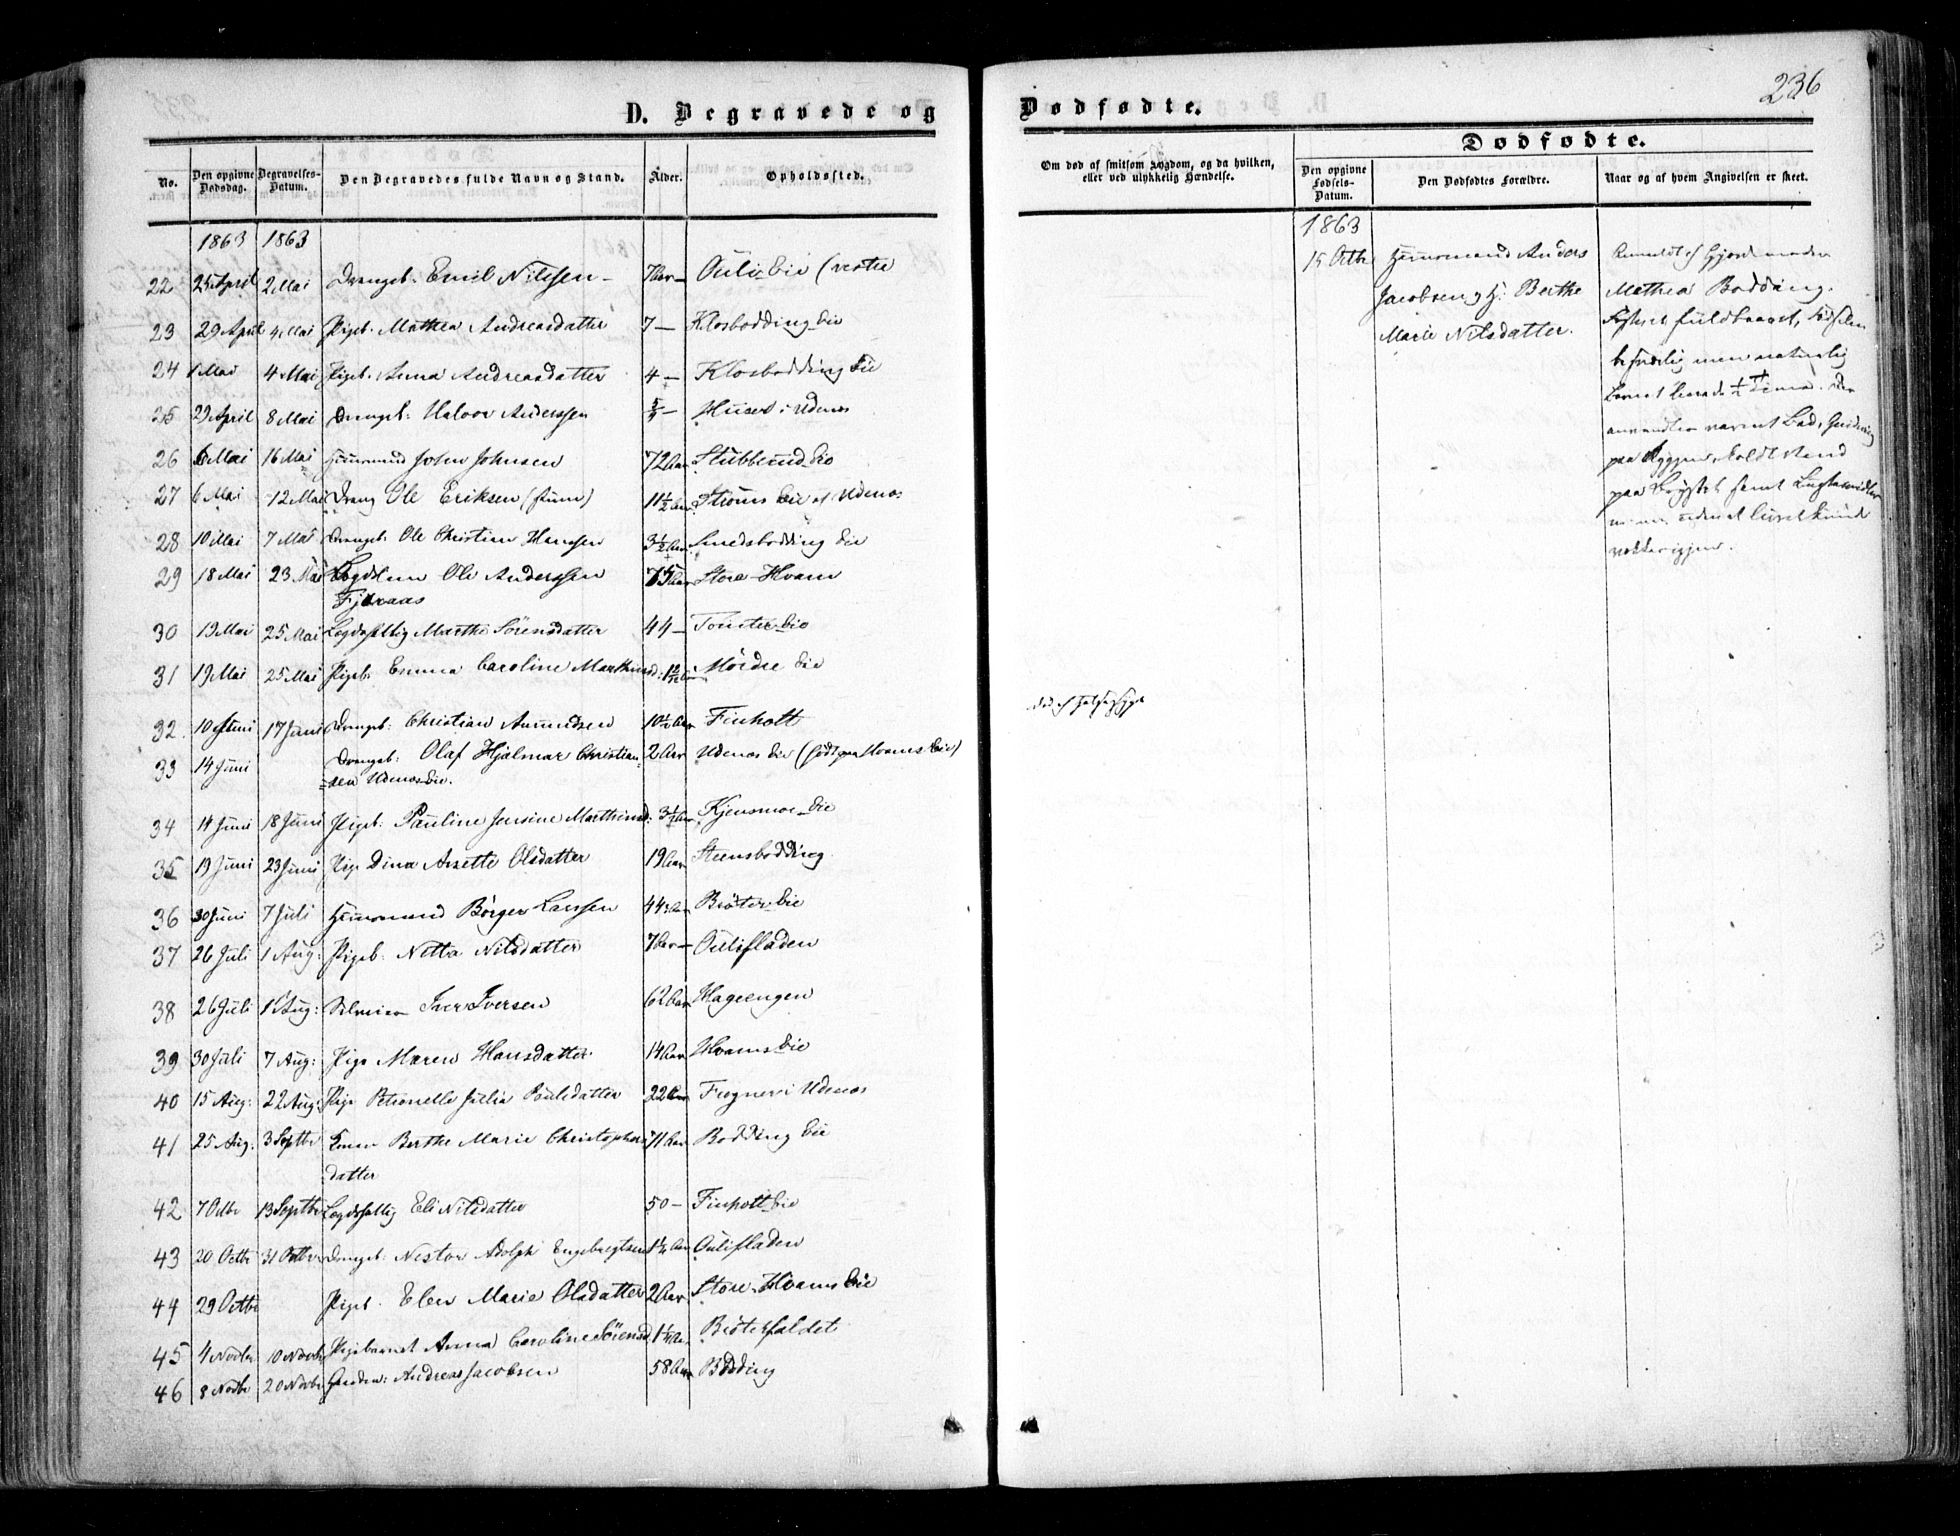 236
D. Begravede og Dødfødte.
No. Den opgivne Dødsdag. Begravelses-Datum. Den Begravedes fulde Navn og Stand. Alder. Opholdssted.
1863 1863
22 25 April 2 Mai Drengeb. Emil Nilssen 7 Aar Ouli Eie (vestre
23 29 April 4 Mai Pigeb. Mathea Andreasdatter 7 — Klosbodding Eie
24 1 Mai 4 Mai Pigeb. Anna Andreasdatter 4 — Klosbodding Eie
25 29 April 8 Mai Drengeb. Halvor Anderssen Huset i Udenæs
26 6 Mai 16 Mai Huusmand John Johnsen 72 Aar Stubberud Eie
27 6 Mai 12 Mai Dreng Ole Eriksen (stum) 11½ Aar Eie af Udenæs
28 10 Mai 7 Mai Drengeb. Ole Christian Hanssen 3½ Aar Smedsbodding Eie
29 18 Mai 23 Mai Ole Anderssen 75 Aar Store-Hvam
Fjeraas
30 19 Mai 25 Mai Lægdsfattig Marthe Sörensdatter 44 — Tomter Eie
31 19 Mai 25 Mai Pigeb. Emma Caroline Mördre Eie
32 10 Juni 17 Juni Drengeb. Christian Amundsen 10½ Aar Finholt
33 14 Juni Drengeb. Olaf Hjalmar Christian- 2 Aar Udenæs Eie (født paa Hvams Eie)
=sen Udenæs Eie.
34 14 Juni 18 Juni Pigeb. Pauline Jensine Marthinsd: Kjensmoe Eie
35 19 Juni 23 Juni Pige Dina Anette Olsdatter 19 Aar Steensbodding
36 30 Juni 7 Juli Huusmand Börger Larssen 44 Aar Bröter Eie
37 26 Juli 1 Aug: Pigeb. Netta Nilsdatter 7 Aar — Oulifladen
38 26 Juli 1 Aug: Iver Iversen 62 Aar Hageengen
39 30 Juli 7 Aug: Pige Maren Hansdatter 14 Aar Hvams Eie
40 15 Aug: 22 Aug: Pige Petronelle Julia Paulsdatter 22 Aar Frogner i Udenæs
41 25 Aug: 3 Septbr Berthe Marie Christophers 71 Aar Bodding Eie
datter
42 13 Septbr Lægdsfattig Eli Nilsdatter 50 — Finholt Eie
43 20 Octbr 31 Octbr Drengeb. Nestor Adolph Engebregtsen 1¼ Aar Oulifladen
44 29 Octbr Pigeb. Elen Marie Olsdatter 2 Aar Store-Hvams Eie
45 4 Novbr 10 Novbr Pigebarnet Anna Caroline Sörensd. Bröterfaldet
46 8 Novbr 20 Novbr Andreas Jacobsen 58 Aar Bodding
Om død af smitsom Sygdom, og da hvilken,
eller ved ulykkelig Hændelse.
død af Halssyge
Dødfødte.
Den opgivne Fødsels-Datum. Den Dødfødtes Forældre. Naar og af hvem Angivelsen er skeet.
1863
15 Octbr Huusmand Anders
Jacobsen og H: Berthe
Marie Nilsdatter.
Anmeldt af Gjordemoder
Mathea Bodding.
Fosteret fuldbaaret, Fødselen
men naturlig
varmt Bad, Gnidning
paa Ryggen, koldt Vand
paa Brystet samt
uden at Livet kunde